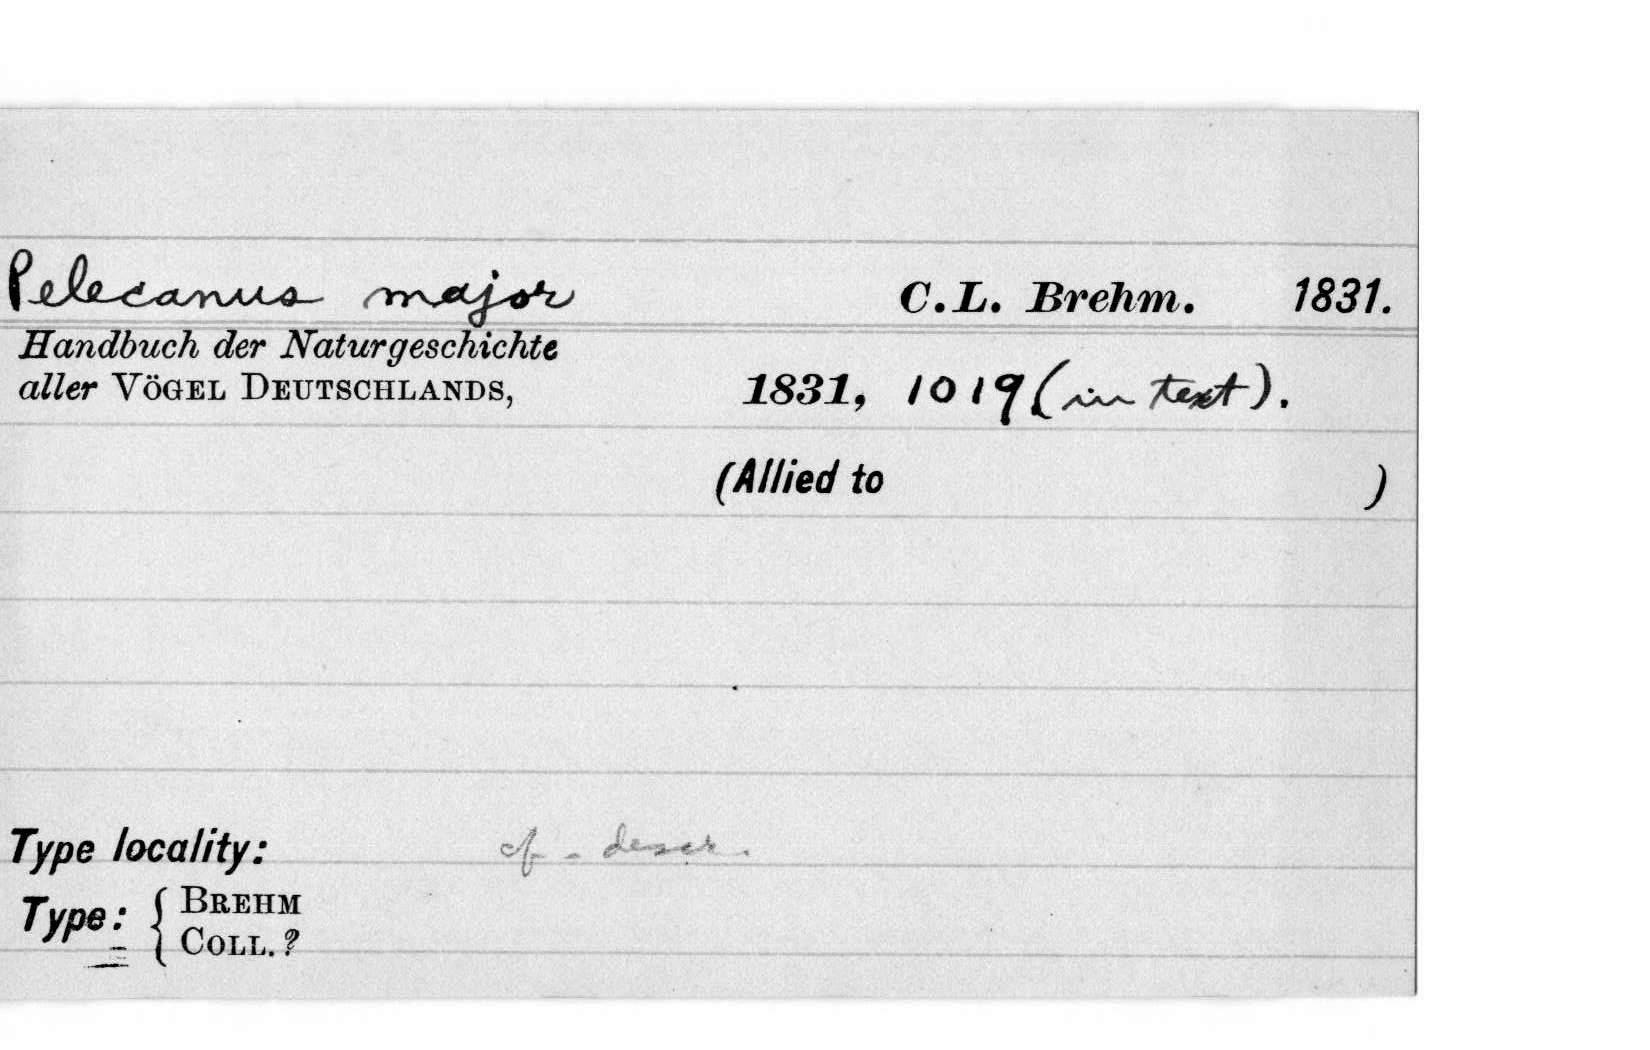 Pelecanus major C.L. Brehm. 1831.
Handbuch der Naturgeschichte
aller VÖGEL DEUTSCHLANDS, 1831, 1019 (in text).
(Allied to )
Type locality: cf. descr.
Type: { BREHM
COLL. ?